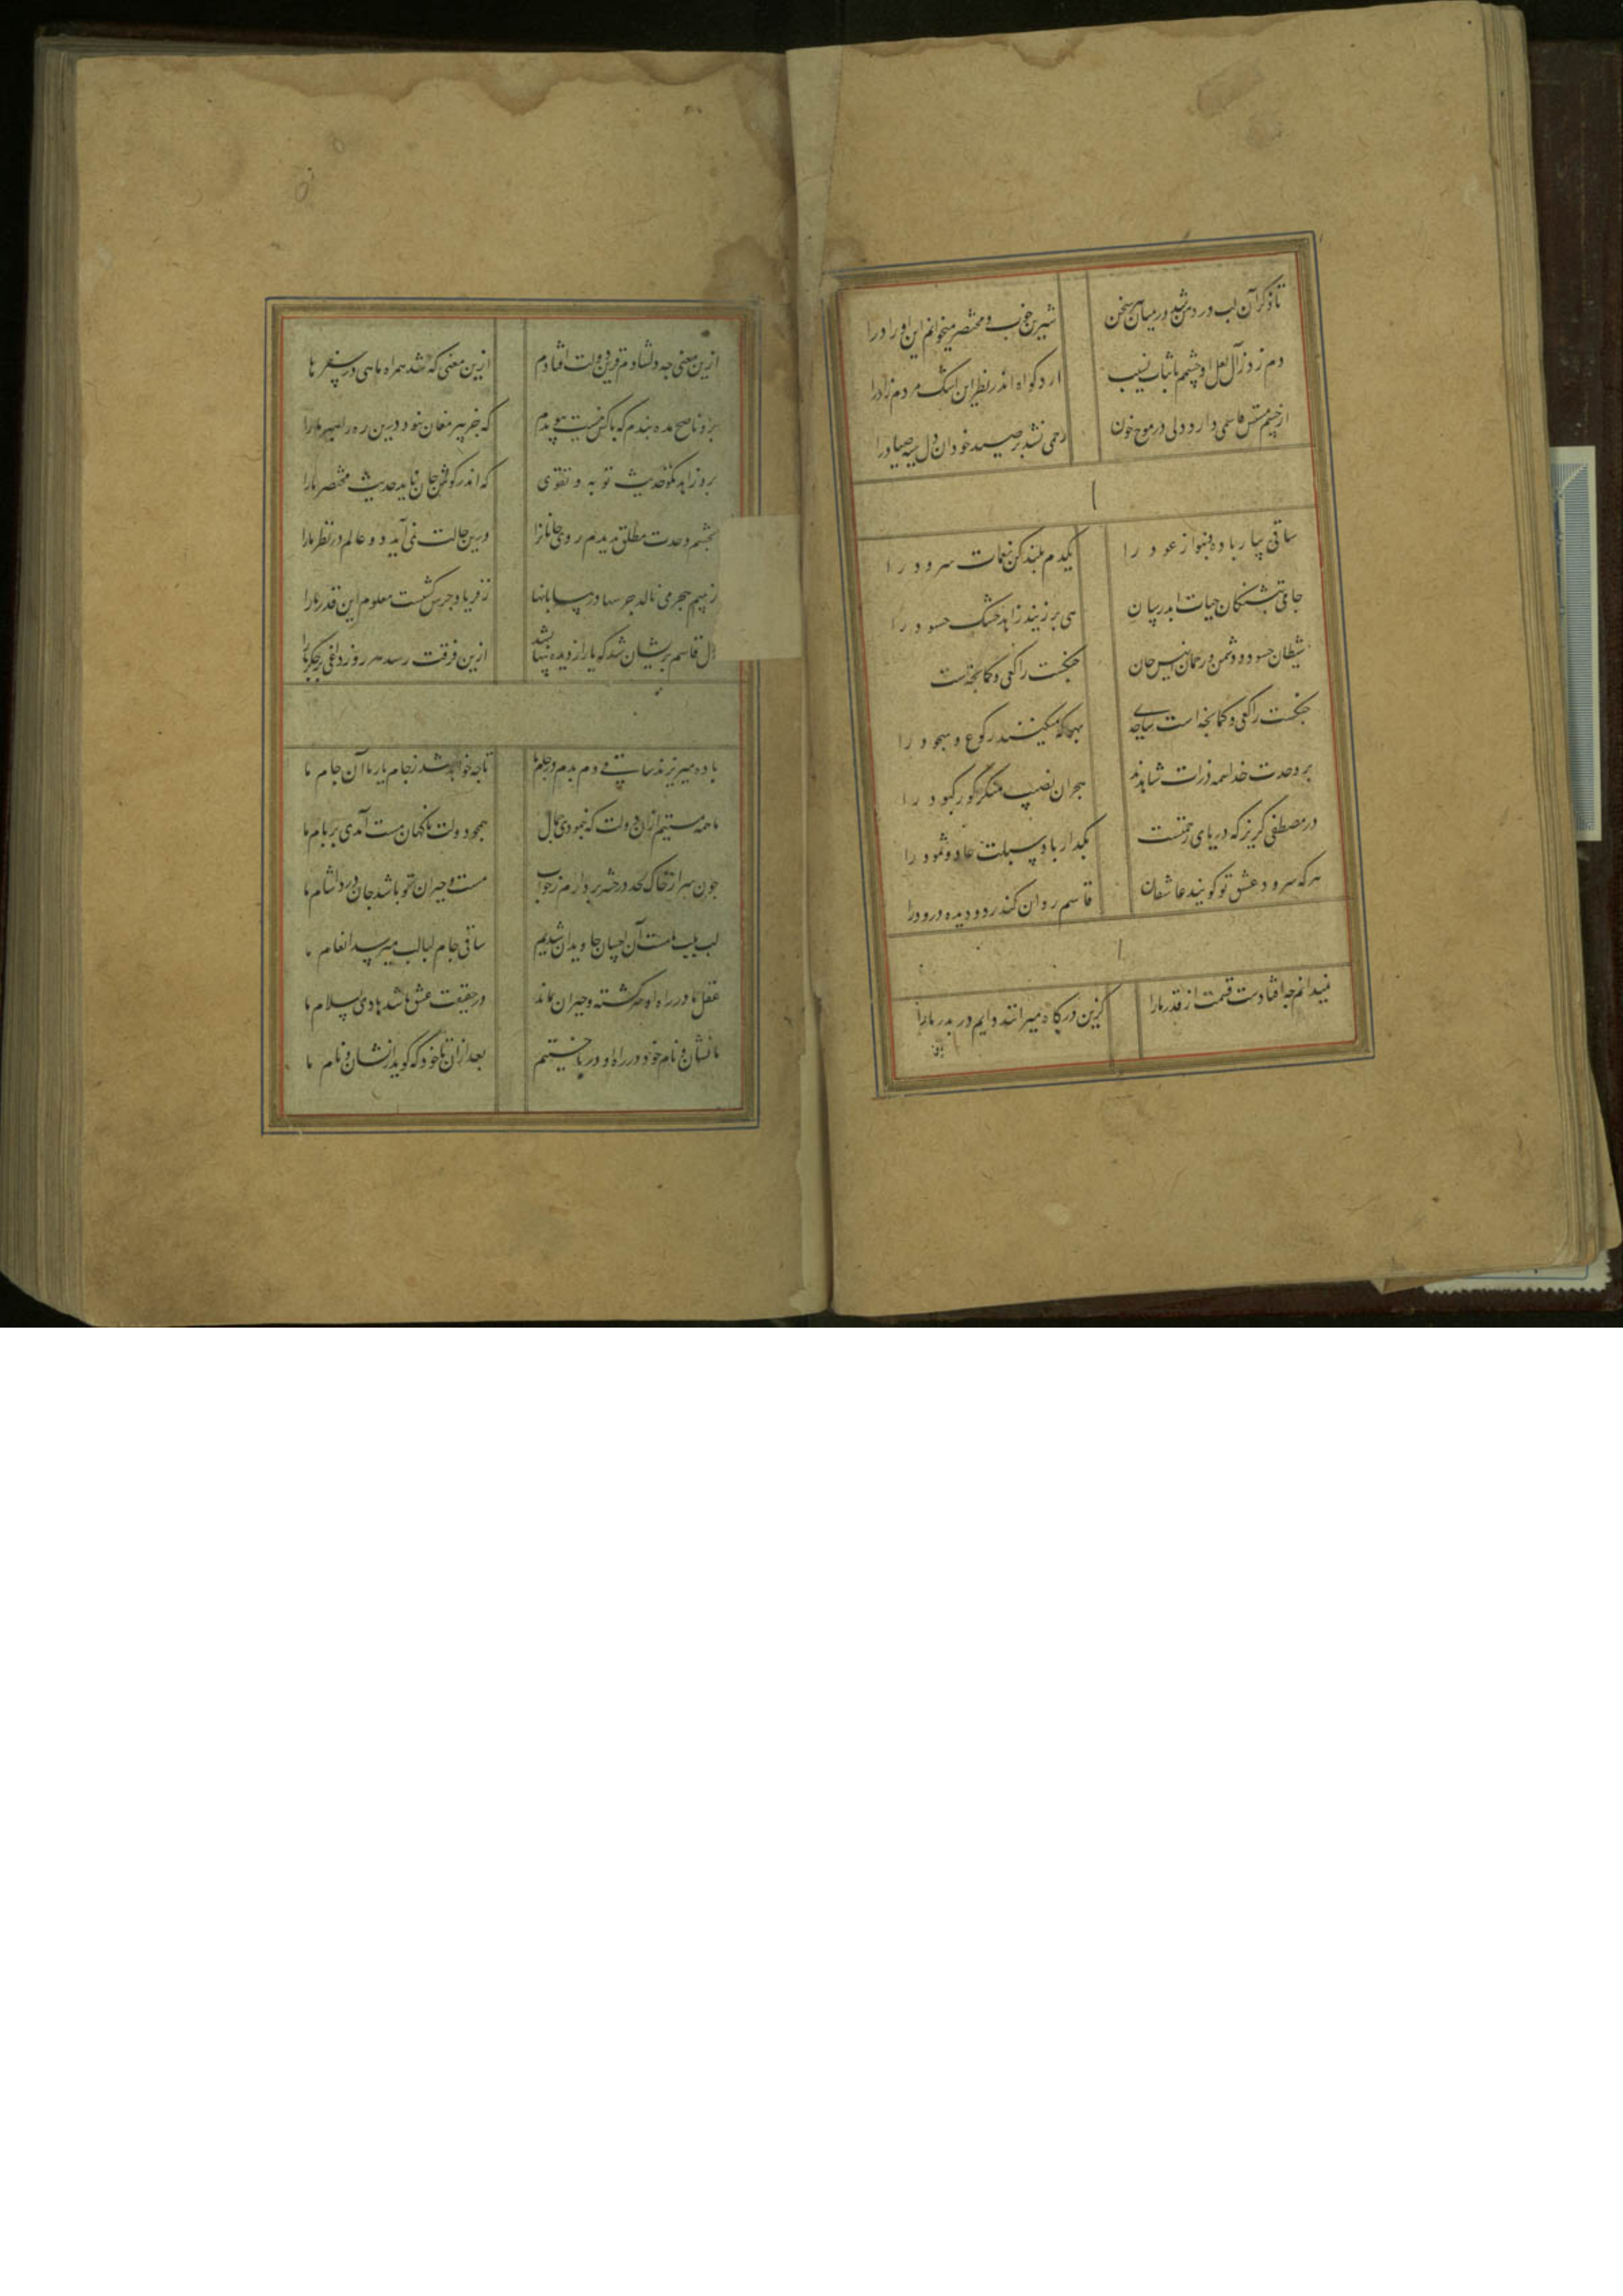 تا ذکر آن لب ورد من شد در میان هر سخن شیرین خوب و مختصر میخوانم این اوراد را
دم زد ز زآل لعل او چشمم باثبات نسب ارد کواه اندر نظر این اشک مردم زاد را
از چشم مستش قاسمی دارد دلی در موج خون رحمی نشد بر صید خود آن دل سیه صیاد را
ساقی بیار باده و بنواز عود را یکدم بلند کن نغمات سرود را
جامی بتشنکان حیات ابد رسان می بر زنید زاهد خشک حسود را
شیطان حسود و دشمن و رحمان انیس جان جنکست راکعی و کمانچه است
جنکست راکعی و کمانچه است ساجدی بهر که میکنند رکوع و سجود را
بر وحدت خدا همه ذرات شاهدند هجران نصیب منکر کور کبود را
در مصطفی کریز که دریای رحمتست بکذار باد سبلت عاد و ثمود را
هر که سرود عشق تو کویند عاشقان قاسم روان کند ز دو دیده درود را
نمیدانم جه افتادست قسمت از قدر ما را کزین درکاه میرانند دایم در بدر ما را
ازین معنی جه دلشادم قرین دولت افتادم ازین معنی که شد همراه ماهی در سفر ما
برو ناصح مده بندم که باکس نیست پیوندم که جز پیر مغان نبود درین ره راهبر ما را
برو زاهد مکو حدیث توبه و تقوی که اندر کوش جان ناید حدیث مختصر ما را
بجشم وحدت مطلق بدیدم روی جانانرا درین حالت نمی آید دو عالم در نظر ما را
ز بیم هجر می نالد جرسها در بیابانها ز فریاد جرس کشتست معلوم این قدر ما را
دل قاسم بریشان شد که یار از دیده پنهان شد ازین فرقت رسد هر روز داغی بر جکر ما را
باده میریزند ساقی دم بدم در جام ما تا جه خواهد شد ز جام یار ما آن جام ما
ما همه مستیم ازان دولت که بنمودی جمال همجو دولت ناکهان مست آمدی بر بام ما
جون سر از خاک لحد در حشر بردارم ز خواب مست و حیران تو باشد جان درد اشام ما
لب بلب مست آن لبان جاویدان شدیم ساقی جام لبالب میرسد انعام ما
عقل ما در راه او سرکشته و حیران بماند در حقیقت عشق باشد هادی اسلام ما
ما نشان و نام خود در راه او در باختیم بعد ازان تا خود که کوید از نشان و نام ما